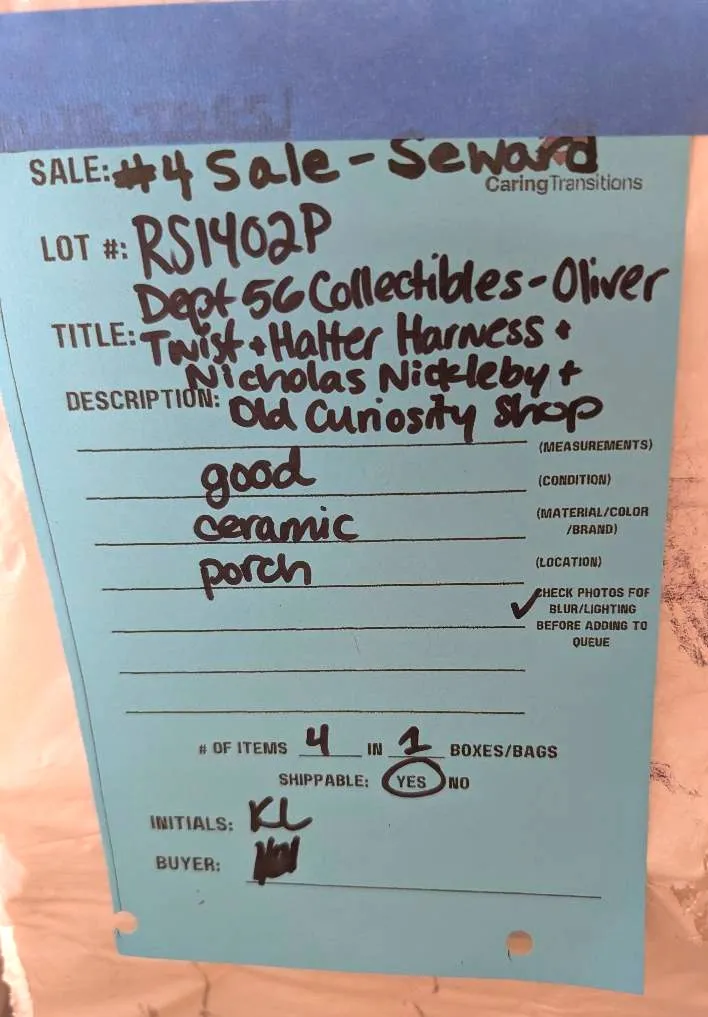 SALE: #4 Sale - Seward
CaringTransitions
LOT #: RS1402P
Dept 56 Collectibles - Oliver
TITLE: Twist + Halter Harness +
Nicholas Nickleby +
DESCRIPTION: Old Curiosity Shop
(MEASUREMENTS)
good (CONDITION)
ceramic (MATERIAL/COLOR
/BRAND)
porch (LOCATION)
✓ CHECK PHOTOS FOR
BLUR/LIGHTING
BEFORE ADDING TO
QUEUE
# OF ITEMS 4 IN 1 BOXES/BAGS
SHIPPABLE: YES NO
INITIALS: KL
BUYER: